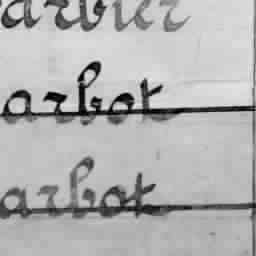 arbier
arbot
arbot